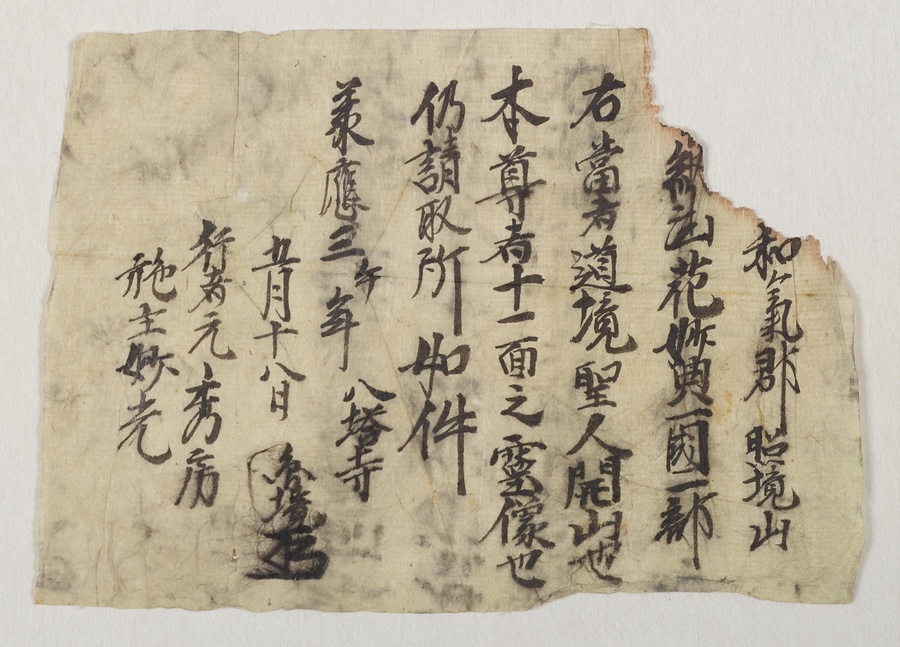 和氣郡 昭境山
納法花妙典一國一部
右當者道境聖人開山也
本尊者十一面之靈像也
仍請取所如件
承應三午年 八塔寺
五月十八日
行者元秀房
施主妙老